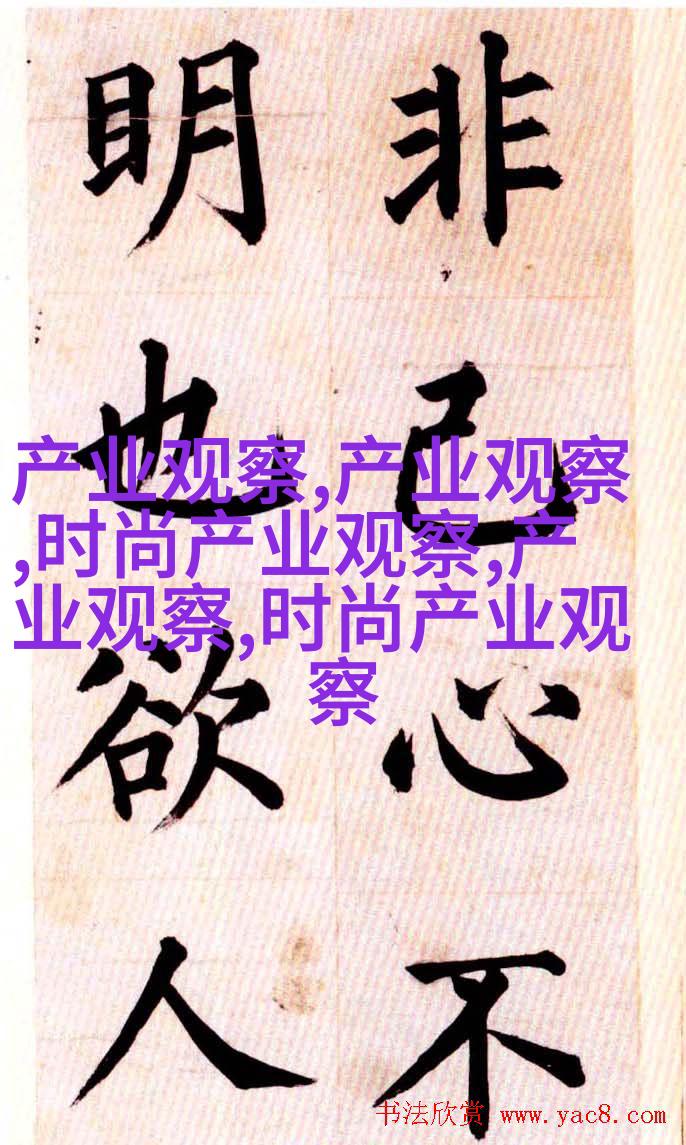 非己心不
明也欲人
产业观察,产业观察
,时尚产业观察,产
业观察,时尚产业观
察
书法欣赏 www.yac8.com